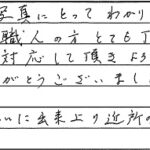 写真にとってわかり
職人の方とても丁
対応して頂きよう
がとうございまし
いに出来上り近所の